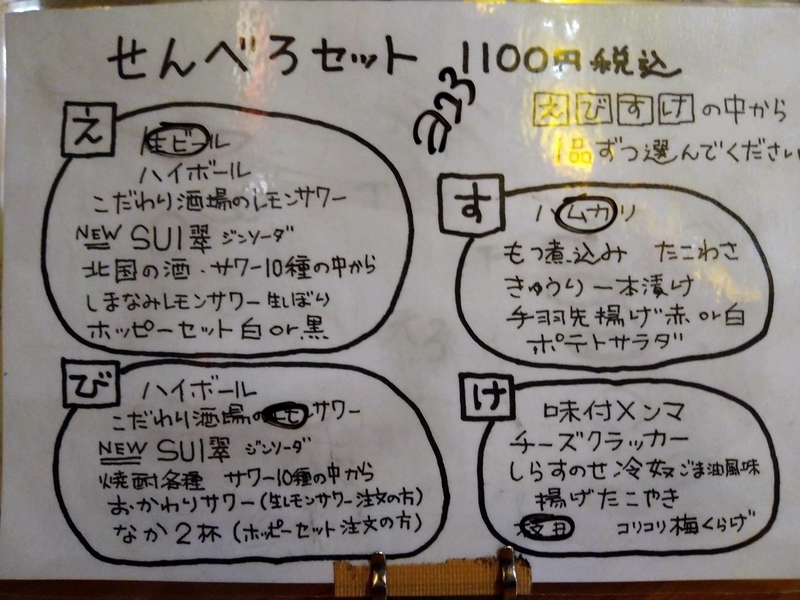 せんべろセット 1100円税込
223
えびすけの中から
1品ずつ選んでください
え
生ビール
ハイボール
こだわり酒場のレモンサワー
NEW SUI翠 ジンソーダ
北国の酒・サワー10種の中から
しまなみレモンサワー生しぼり
ホッピーセット白or黒
す
ハムカツ
もつ煮込み たこわさ
きゅうり一本漬け
手羽先揚げ赤or白
ポテトサラダ
び
ハイボール
こだわり酒場のレモンサワー
NEW SUI翠 ジンソーダ
焼酎各種 サワー10種の中から
おかわりサワー(生レモンサワー注文の方)
なか2杯(ホッピーセット注文の方)
け
味付メンマ
チーズクラッカー
しらすのせ冷奴ごま油風味
揚げたこやき
枝豆 コリコリ梅くらげ